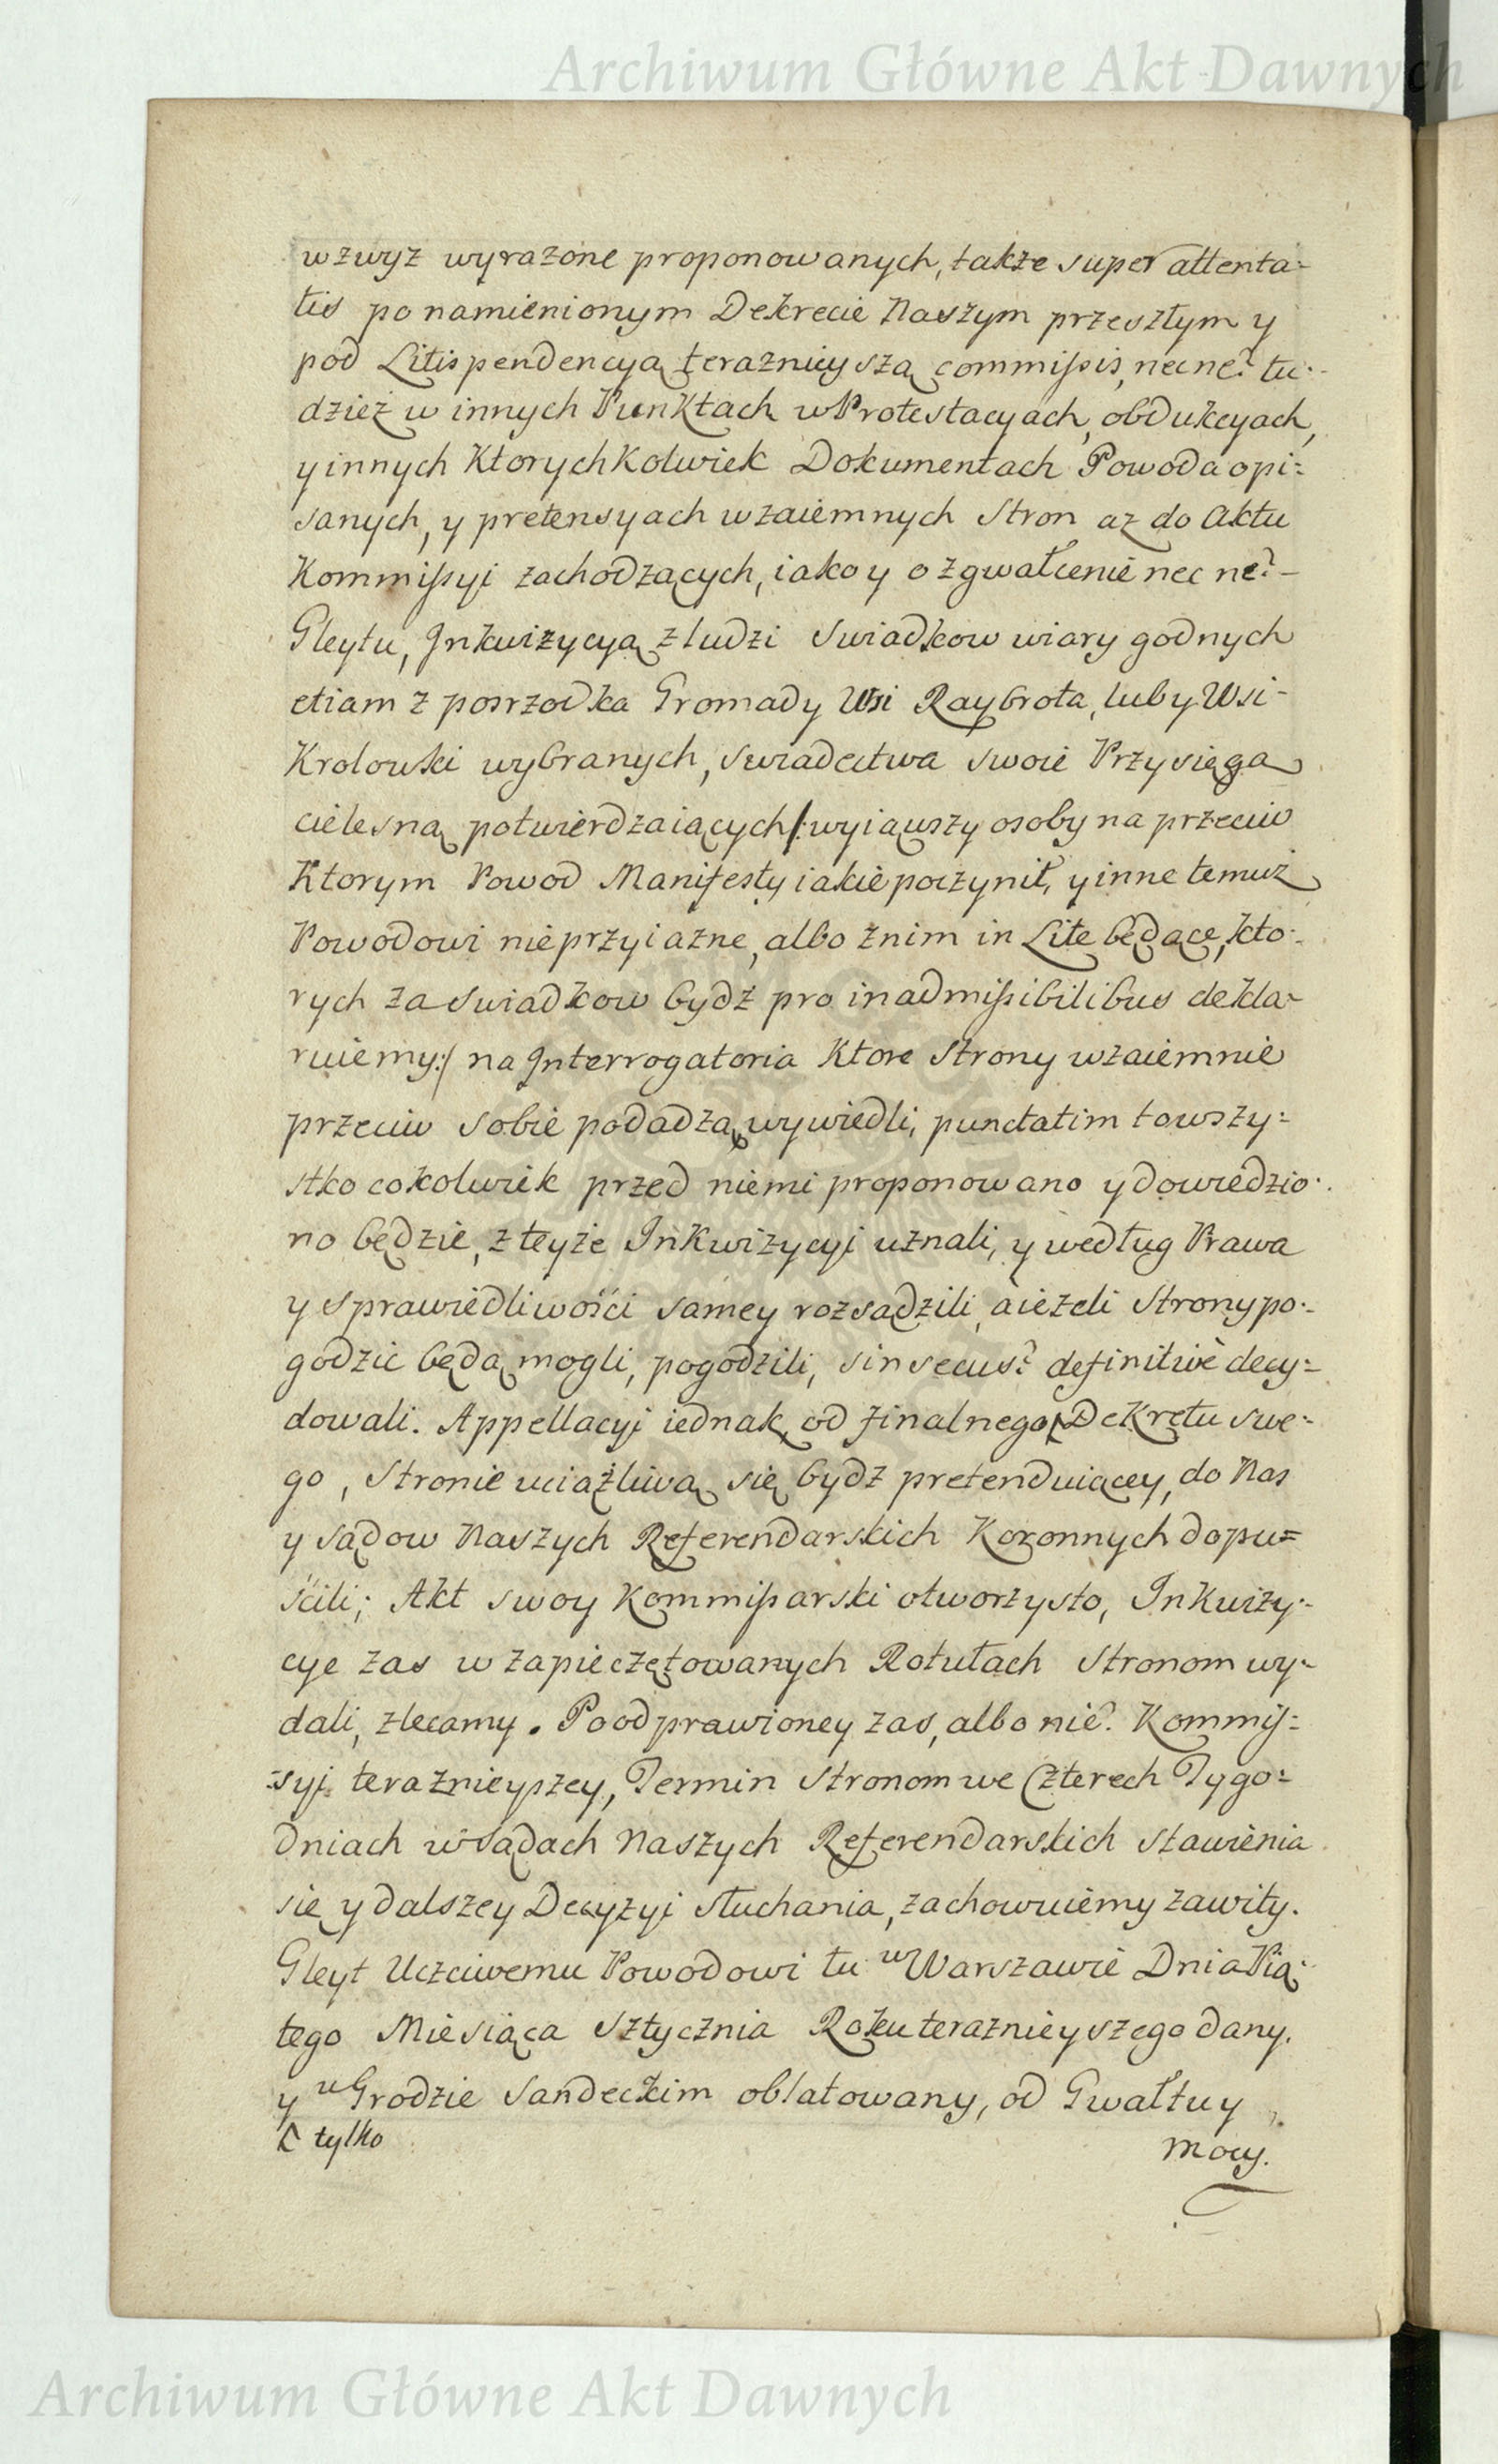 Archiwum Główne Akt Dawnych
wzwyż wyrażone proponowanych, także super attenta=
tis po namienionym Dekrecie Naszym przeszłym y
pod Litispendencyą teraznieyszą commissis, nec ne? tu=
dzież w innych Punktach w Protestacyach, obdukcyach,
y innych ktorychkolwiek Dokumentach Powoda opi=
sanych, y pretensyach wzaiemnych Stron aż do Aktu
Kommissyi zachodzących, iako y o zgwałcenie nec ne?-
Gleytu, Inkwizycyą z ludzi Swiadkow wiary godnych
etiam z posrzodka Gromady Wsi Raybrota, lub y Wsi-
Krolowki wybranych, swiadectwa swoie Przysięgą
cielesną potwierdzaiących /: wyiąwszy osoby na przeciw
Ktorym Powod Manifesty iakie poczynił, y inne temuż
Powodowi nieprzyiazne, albo z nim in Lite będące, kto=
rych za Swiadkow bydź pro inadmissibilibus dekla=
ruiemy :/ na Interrogatoria Ktore Strony wzaiemnie
przeciw sobie podadzą, wywiedli, punctatim to wszy=
stko cokolwiek przed niemi proponowano y dowiedzio=
no będzie, z teyże Inkwizycyi uznali, y według Prawa
y sprawiedliwości samey rozsądzili, a ieżeli Strony po=
godzić będą mogli, pogodzili, sin secus? definitivè decy=
dowali. Appellacyi iednak, od finalnego ⌈ Dekretu swe=
go, Stronie uciążliwą się bydź pretenduiącey, do Nas
y Sądow Naszych Referendarskich Koronnych dopu=
ścili; Akt swoy Kommissarski otworzysto, Inkwizy=
cye zas w zapieczętowanych Rotułach Stronom wy=
dali, zlecamy. Po odprawioney zas, albo nie? Kommis=
=syi teraznieyszey, Termin Stronom we Czterech Tygo=
dniach w Sądach Naszych Referendarskich stawienia
się y dalszey Decyzyi słuchania, zachowuiemy zawity.
Gleyt Uczciwemu Powodowi tu w Warszawie Dnia Pią=
tego Miesiąca Stycznia Roku teraznieyszego dany.
y w Grodzie Sandeckim oblatowany, od Gwałtu y
⌈ tylko
mocy.
Archiwum Główne Akt Dawnych